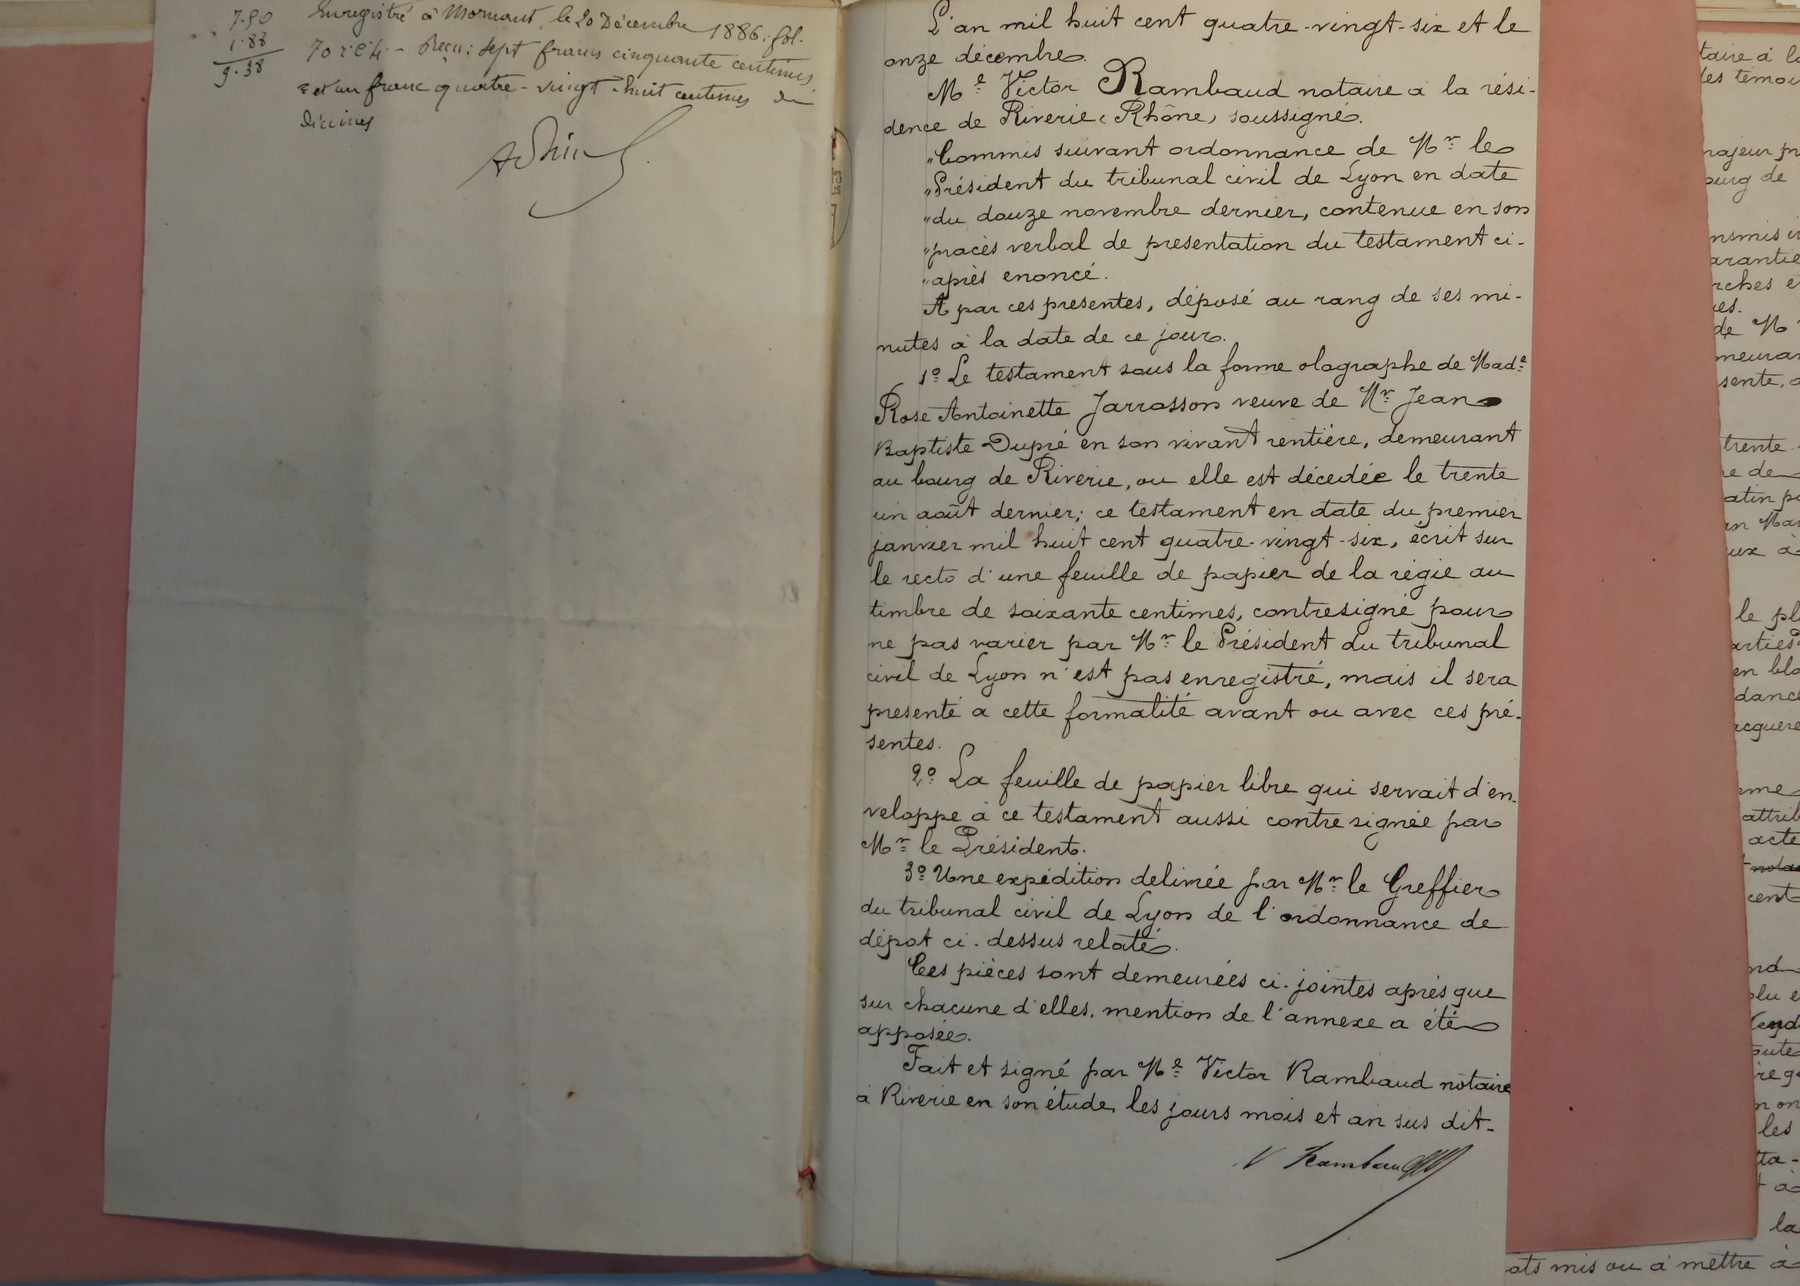 7.50
1.88
9.38
Enregistré à Mornant, le 20 Décembre 1886. fol.
70 r c 4. - Reçu: sept francs cinquante centimes
et un franc quatre-vingt-huit centimes de
décimes
L'an mil huit cent quatre-vingt-six et le
onze décembre.
Me Victor Rambaud notaire a la rési-
dence de Riverie (Rhône) soussigné.
"Commis suivant ordonnance de Mr le
"Président du tribunal civil de Lyon en date
"du douze novembre dernier, contenue en son
"procès verbal de presentation du testament ci-
"après enoncé.
A par ces presentes, déposé au rang de ses mi-
nutes à la date de ce jour.
1o Le testament sous la forme olographe de Made
Rose Antoinette Jarrosson veuve de Mr Jean
Baptiste Dupré en son vivant rentière, demeurant
au bourg de Riverie, ou elle est décedée le trente
un août dernier; ce testament en date du premier
janvier mil huit cent quatre-vingt-six, écrit sur
le recto d'une feuille de papier de la régie au
timbre de soixante centimes, contresigné pour
ne pas varier par Mr le Président du tribunal
civil de Lyon n'est pas enregistré, mais il sera
presenté a cette formalité avant ou avec ces pré-
sentes.
2o La feuille de papier libre qui servait d'en-
veloppe à ce testament aussi contresignée par
Mr le Président.
3o Une expédition delivrée par Mr le Greffier
du tribunal civil de Lyon de l'ordonnance de
dépot ci-dessus relaté.
Ces pièces sont demeurées ci-jointes après que
sur chacune d'elles, mention de l'annexe a été
apposée.
Fait et signé par Me Victor Rambaud notaire
à Riverie en son étude, les jours mois et an sus dit-
V Rambaud
taire à la
trente
le pl
en bl
acte
cent
les
la
ats mis ou à mettre à